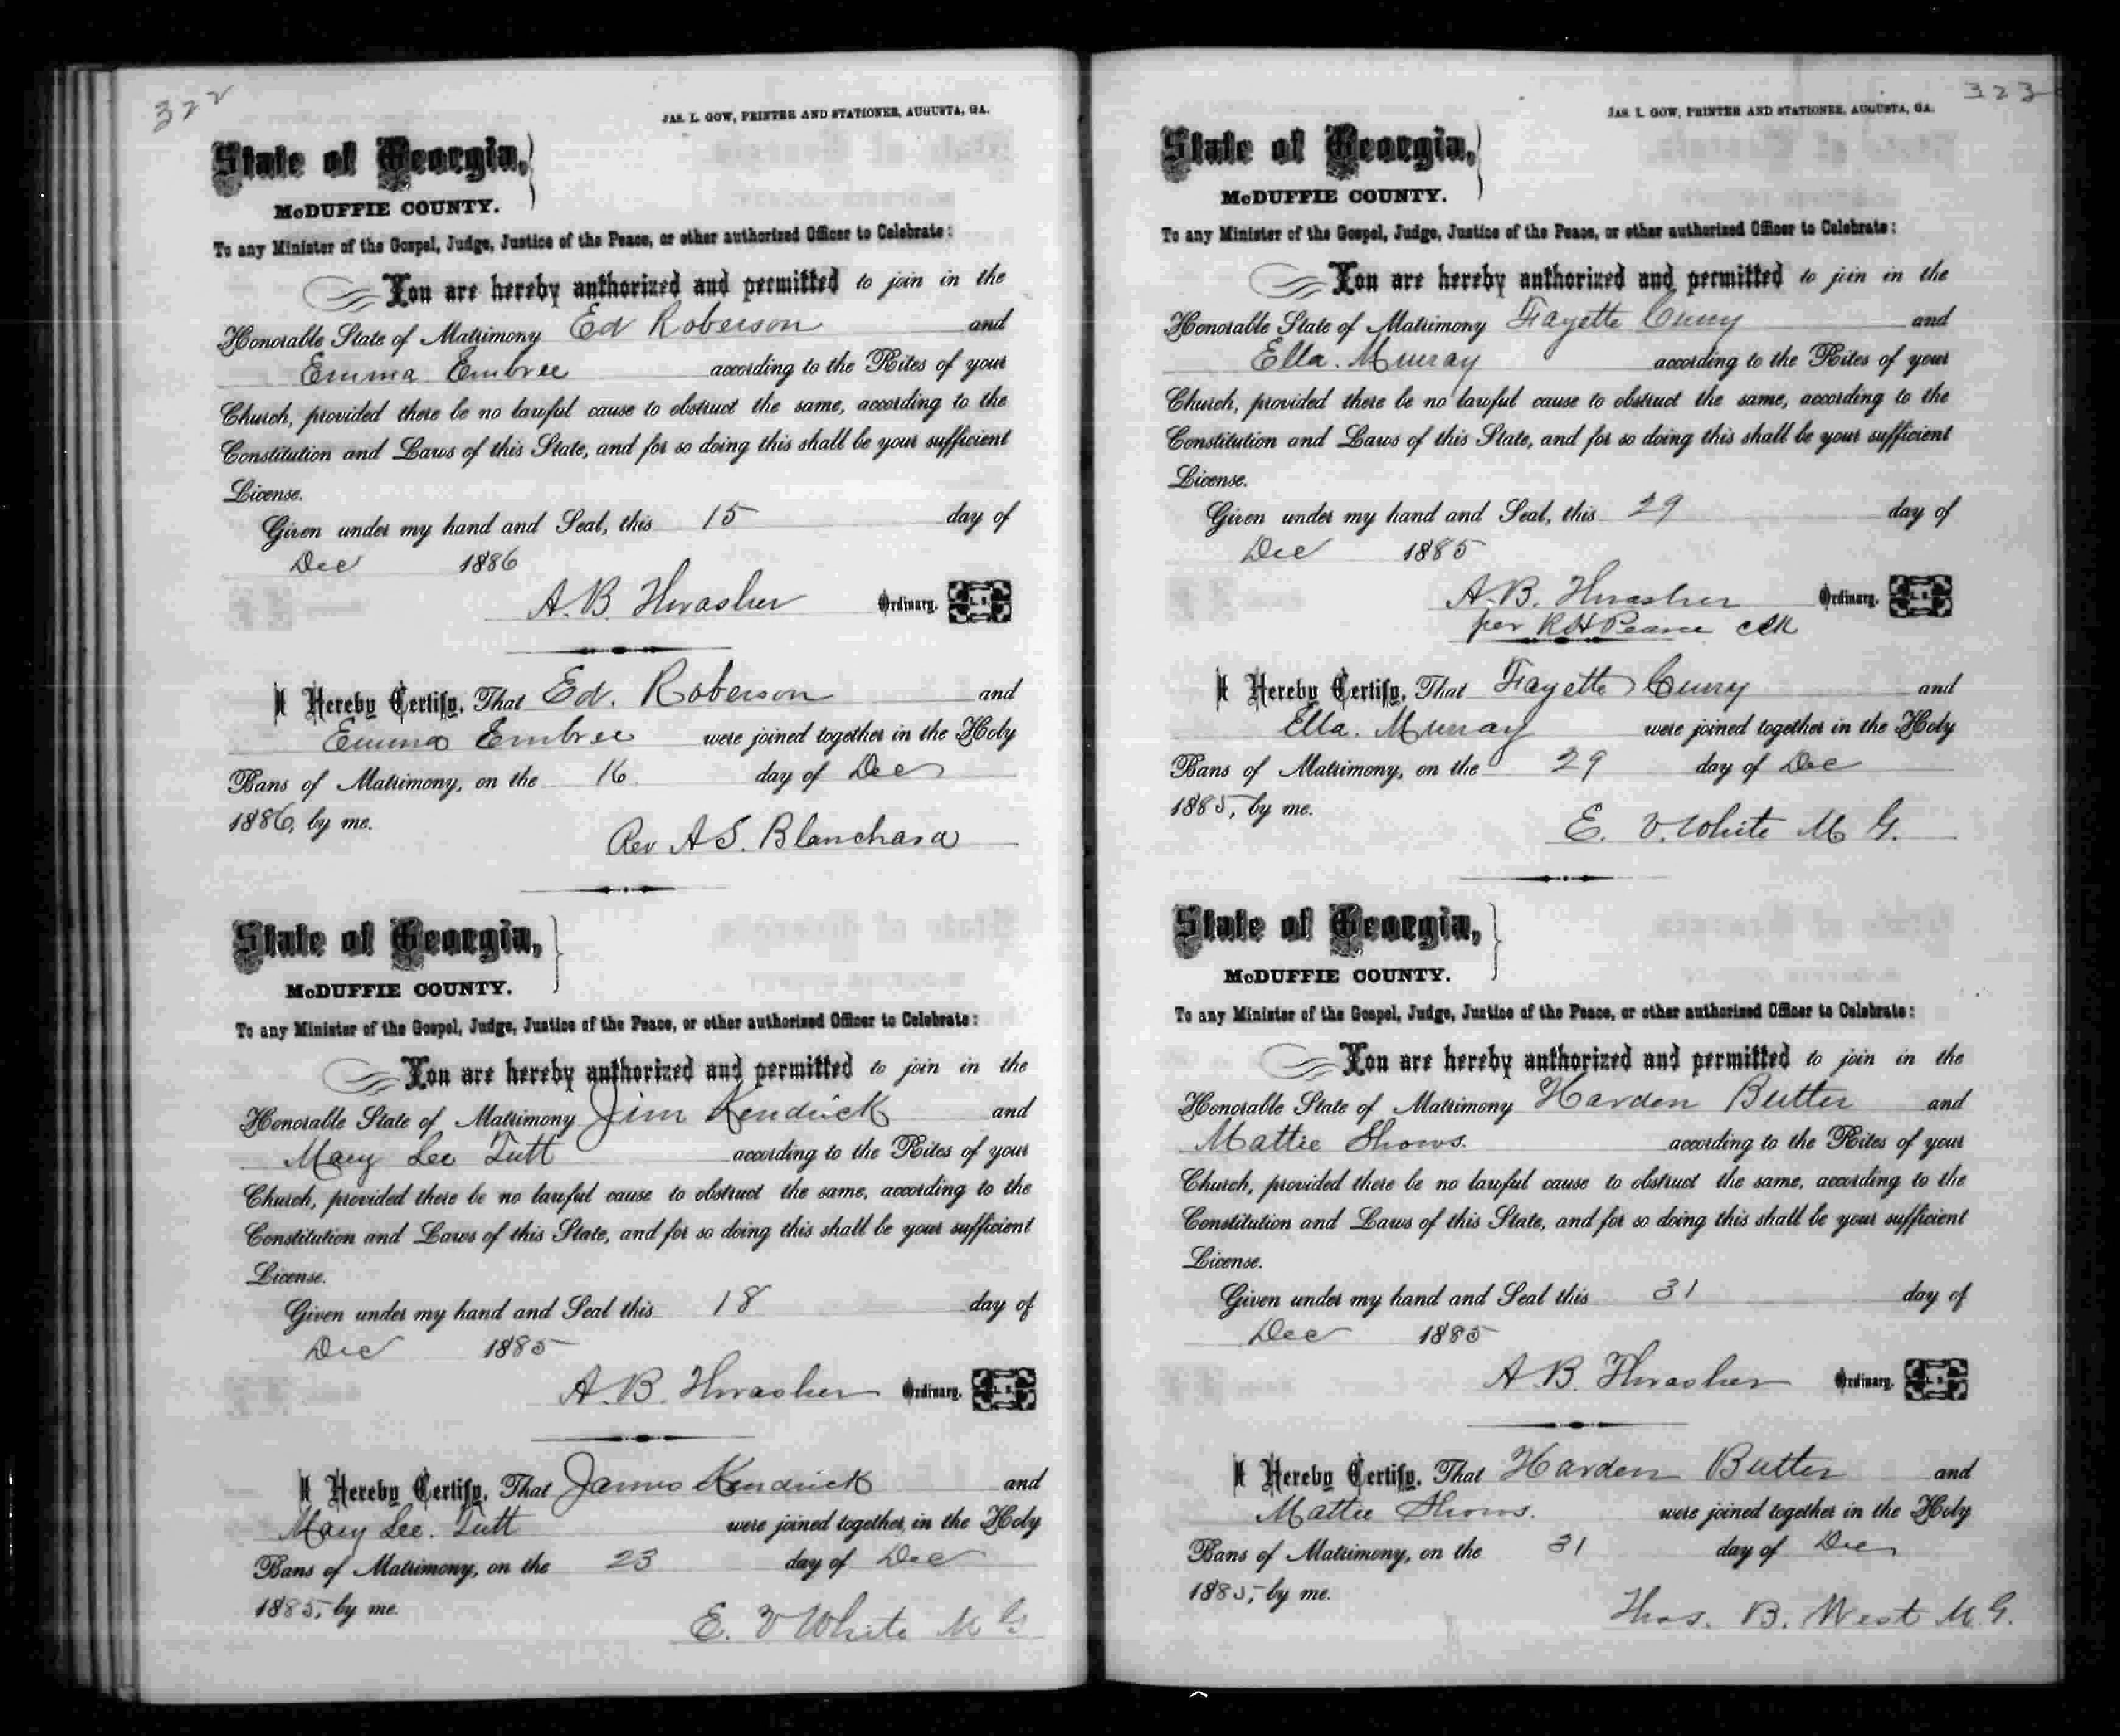 322
JAS. L. GOW, PRINTER AND STATIONER, AUGUSTA, GA.
State of Georgia,
McDUFFIE COUNTY.
To any Minister of the Gospel, Judge, Justice of the Peace, or other authorized Officer to Celebrate:
You are hereby authorized and permitted to join in the
Honorable State of Matrimony Ed Roberson and
Emma Embree according to the Rites of your
Church, provided there be no lawful cause to obstruct the same, according to the
Constitution and Laws of this State, and for so doing this shall be your sufficient
License.
Given under my hand and Seal, this 15 day of
Dec 1886
A. B. Thrasher Ordinary. L. S.
I Hereby Certify, That Ed. Roberson and
Emma Embree were joined together in the Holy
Bans of Matrimony, on the 16 day of Dec
1886, by me.
Rev A S. Blanchard
State of Georgia,
McDUFFIE COUNTY.
To any Minister of the Gospel, Judge, Justice of the Peace, or other authorized Officer to Celebrate:
You are hereby authorized and permitted to join in the
Honorable State of Matrimony Jim Kendrick and
Mary Lee Tutt according to the Rites of your
Church, provided there be no lawful cause to obstruct the same, according to the
Constitution and Laws of this State, and for so doing this shall be your sufficient
License.
Given under my hand and Seal this 18 day of
Dec 1885
A. B. Thrasher Ordinary. L. S.
I Hereby Certify, That James Kendrick and
Mary Lee. Tutt were joined together in the Holy
Bans of Matrimony, on the 23 day of Dec
1885, by me.
E. V White M G
323
JAS. L. GOW, PRINTER AND STATIONER, AUGUSTA, GA.
State of Georgia,
McDUFFIE COUNTY.
To any Minister of the Gospel, Judge, Justice of the Peace, or other authorized Officer to Celebrate:
You are hereby authorized and permitted to join in the
Honorable State of Matrimony Fayette Curry and
Ella. Murray according to the Rites of your
Church, provided there be no lawful cause to obstruct the same, according to the
Constitution and Laws of this State, and for so doing this shall be your sufficient
License.
Given under my hand and Seal, this 29 day of
Dec 1885
A. B. Thrasher Ordinary. L. S.
per R H Pearce clk
I Hereby Certify, That Fayette Curry and
Ella. Murray were joined together in the Holy
Bans of Matrimony, on the 29 day of Dec
1885, by me.
E. V. White M G.
State of Georgia,
McDUFFIE COUNTY.
To any Minister of the Gospel, Judge, Justice of the Peace, or other authorized Officer to Celebrate:
You are hereby authorized and permitted to join in the
Honorable State of Matrimony Harden Butler and
Mattie Shows. according to the Rites of your
Church, provided there be no lawful cause to obstruct the same, according to the
Constitution and Laws of this State, and for so doing this shall be your sufficient
License.
Given under my hand and Seal this 31 day of
Dec 1885
A. B. Thrasher Ordinary. L. S.
I Hereby Certify, That Harden Butler and
Mattie Shows. were joined together in the Holy
Bans of Matrimony, on the 31 day of Dec
1885, by me.
Thos. B. West M. G.